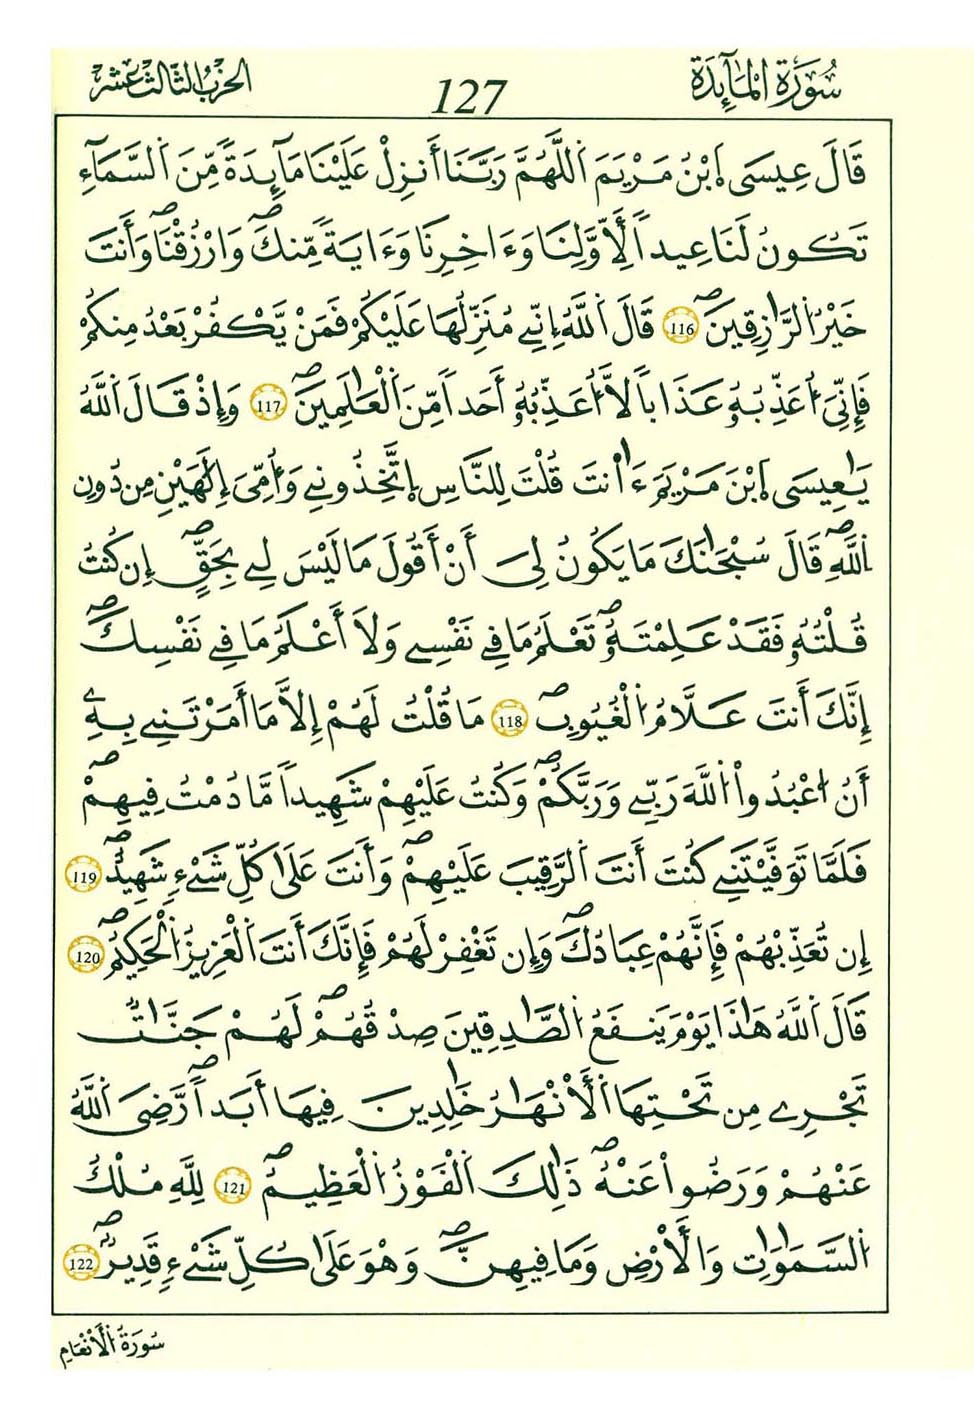 سُورَةُ الْمَآئِدَةِ
127
الحزب الثالث عشر
قَالَ عِيسَى اَبْنُ مَرْيَمَ اَللَّهُمَّ رَبَّنَا أَنزِلْ عَلَيْنَا مَآئِدَةً مِّنَ اَلسَّمَآءِ
تَكُونُ لَنَا عِيداً لِّأَوَّلِنَا وَءَاخِرِنَا وَءَايَةً مِّنكَ وَارْزُقْنَا وَأَنتَ
خَيْرُ اُلرَّٰزِقِينَ 116 قَالَ اَللَّهُ إِنِّے مُنَزِّلُهَا عَلَيْكُمْ فَمَنْ يَّكْفُرْ بَعْدُ مِنكُمْ
فَإِنِّىَ أُعَذِّبُهُۥ عَذَاباً لَّا أُعَذِّبُهُۥ أَحَداً مِّنَ اَلْعَٰلَمِينَ 117 وَإِذْ قَالَ اَللَّهُ
يَٰعِيسَى اَبْنَ مَرْيَمَ ءَاٰنتَ قُلْتَ لِلنَّاسِ اِتَّخِذُونِے وَأُمِّىَ إِلَٰهَيْنِ مِن دُونِ
اِللَّهِ قَالَ سُبْحَٰنَكَ مَا يَكُونُ لِىَ أَنْ أَقُولَ مَا لَيْسَ لِے بِحَقٍّ إِن كُنتُ
قُلْتُهُۥ فَقَدْ عَلِمْتَهُۥ تَعْلَمُ مَا فِے نَفْسِے وَلَا أَعْلَمُ مَا فِے نَفْسِكَ
إِنَّكَ أَنتَ عَلَّامُ اُلْغُيُوبِ 118 مَا قُلْتُ لَهُمْ إِلَّا مَا أَمَرْتَنِے بِهِۦ
أَنُ اُعْبُدُواْ اُللَّهَ رَبِّے وَرَبَّكُمْ وَكُنتُ عَلَيْهِمْ شَهِيداً مَّا دُمْتُ فِيهِمْ
فَلَمَّا تَوَفَّيْتَنِے كُنتَ أَنتَ اَلرَّقِيبَ عَلَيْهِمْ وَأَنتَ عَلَىٰ كُلِّ شَےْءٍ شَهِيدٌ 119
إِن تُعَذِّبْهُمْ فَإِنَّهُمْ عِبَادُكَ وَإِن تَغْفِرْ لَهُمْ فَإِنَّكَ أَنتَ اَلْعَزِيزُ اُلْحَكِيمُ 120
قَالَ اَللَّهُ هَٰذَا يَوْمَ يَنفَعُ اُلصَّٰدِقِينَ صِدْقُهُمْ لَهُمْ جَنَّٰتٌ
تَجْرِے مِن تَحْتِهَا اَلْأَنْهَٰرُ خَٰلِدِينَ فِيهَا أَبَداً رَّضِىَ اَللَّهُ
عَنْهُمْ وَرَضُواْ عَنْهُ ذَٰلِكَ اَلْفَوْزُ اُلْعَظِيمُ 121 لِلَّهِ مُلْكُ
اُلسَّمَٰوَٰتِ وَالْأَرْضِ وَمَا فِيهِنَّ وَهْوَ عَلَىٰ كُلِّ شَےْءٍ قَدِيرٌ 122
سُورَةُ الْأَنْعَامِ